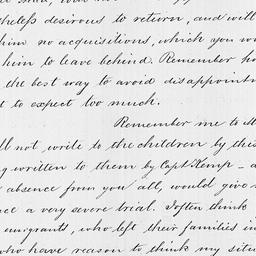 desirous to return, and will
him no acquisitions, which you wo
him to leave behind. Remember ho
the best way to avoid disappointm
t to expect too much.
Remember me to M
ll not write to the children by this
g written to them by Capt. Kemp - a
absence from you all, would give
ce a very severe trial. I often think
emigrants, who left their families in
who have reason to think my situ